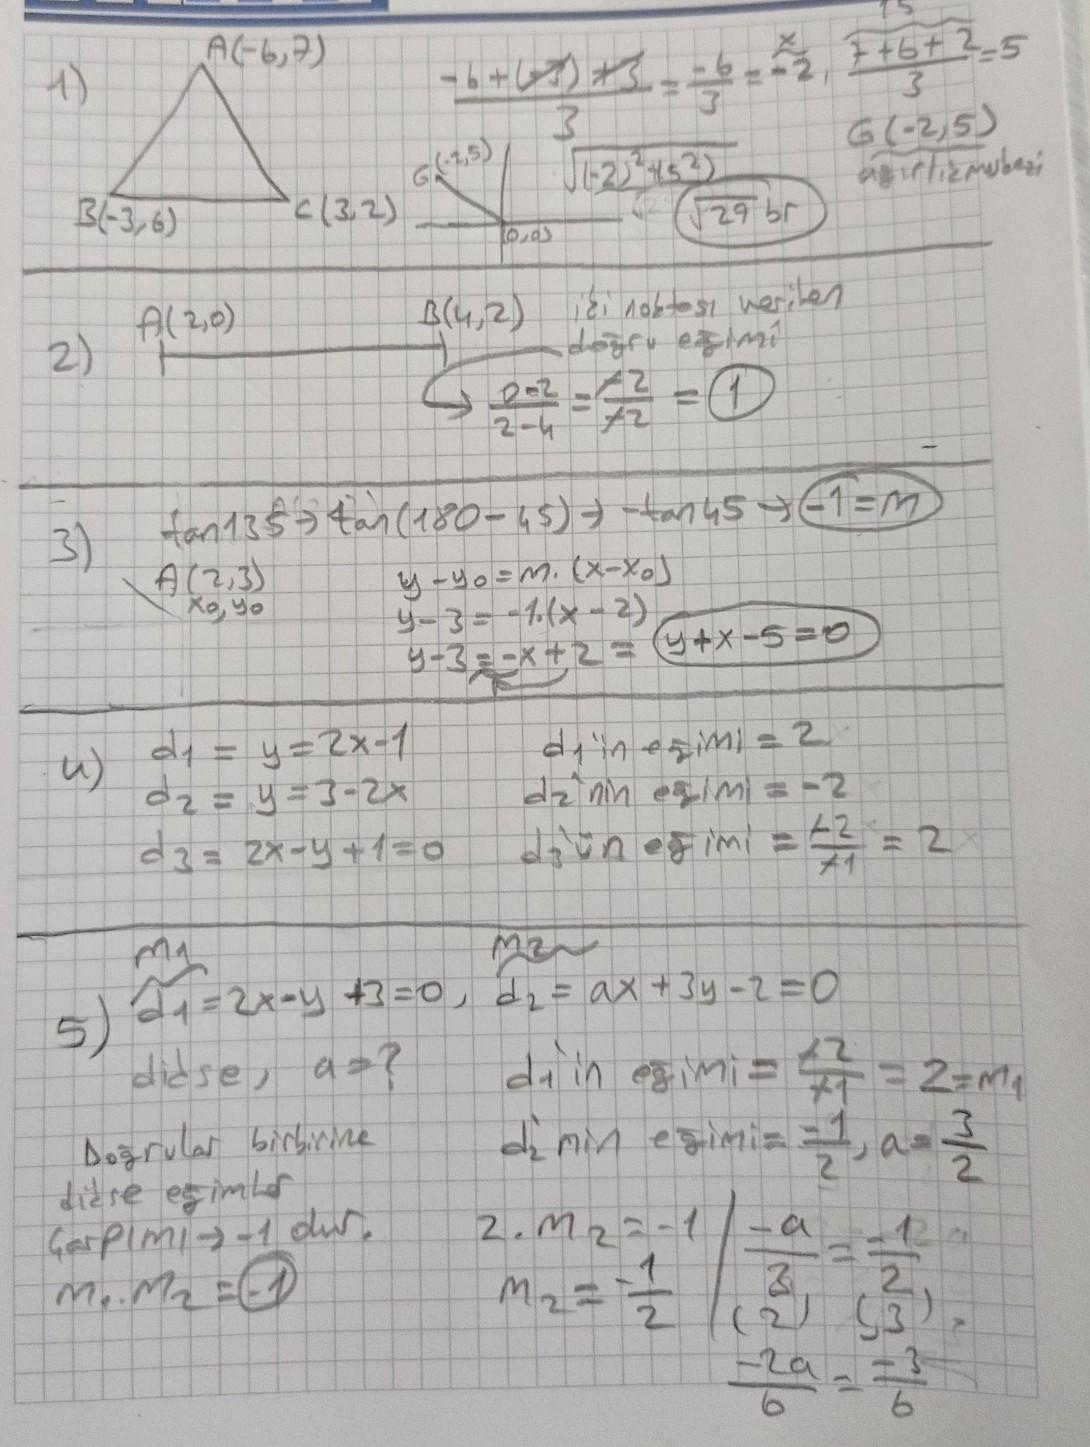 1) A(-6,7)
B(-3,6) C(3,2)
15
(-6+(-3)+3)/3 = -6/3 = -2, (7+6+2)/3 = 5
x
G(-2,5)
ağırlık merkezi
G(-2,5)
√((-2)²+(5²))
(0,0)
√29 br
2) A(2,0) B(4,2) iki noktası verilen
doğru eğimi
(0-2)/(2-4) = -2/-2 = 1
3) tan135 → tan(180-45) → -tan45 → -1=m
A(2,3)
x0,y0
y-y0=m.(x-x0)
y-3=-1.(x-2)
y-3=-x+2 = y+x-5=0
4) d1 = y=2x-1 d1'in eğimi = 2
d2 = y=3-2x d2'nin eğimi = -2
d3 = 2x-y+1=0 d3'ün eğimi = -2/-1 = 2
M1 M2
5) d1=2x-y+3=0, d2=ax+3y-2=0
dikse, a=?
d1'in eğimi = -2/-1 = 2=m1
d2'nin eğimi = -1/2, a=3/2
Doğrular birbirine
dikse eğimler
Çarpımı → -1 dir.
m1.m2 = -1
2.m2=-1
m2=-1/2
-a/3 = -1/2
(2) (3)
-2a/6 = -3/6